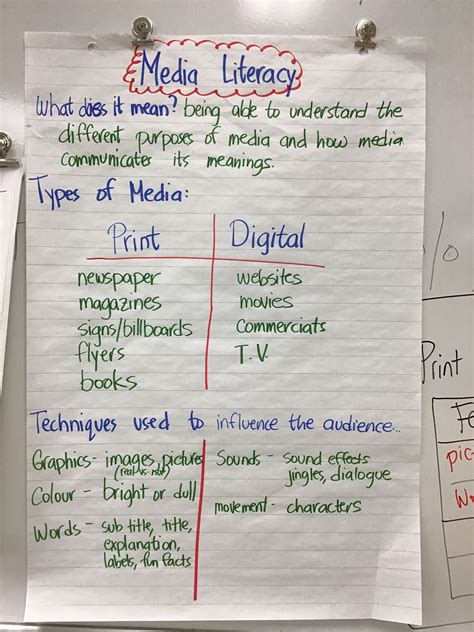 Media Literacy
What does it mean? being able to understand the
different purposes of media and how media
communicates its meanings.
Types of Media:
Print
Digital
newspaper
magazines
signs/billboards
flyers
books
websites
movies
Commercials
T.V.
Techniques used to influence the audience...
Graphics - images, pictures
(real vs not)
Colour - bright or dull
Words - sub title, title,
explanation,
labels, fun facts
Sounds - sound effects
jingles, dialogue
movement - characters
Print